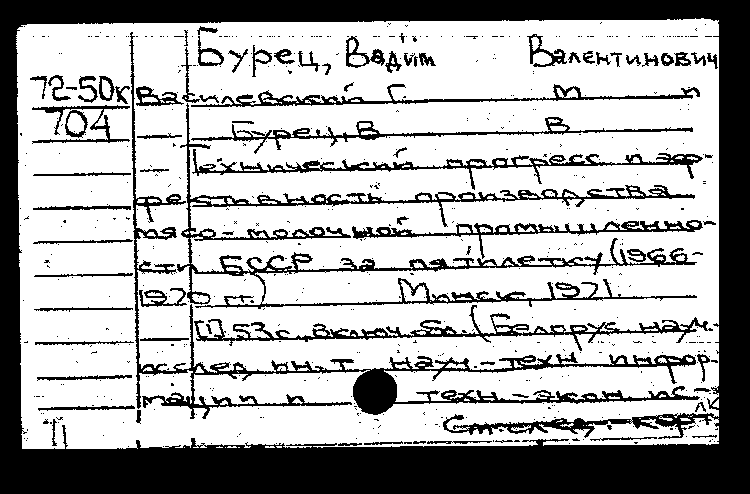 Бурец, Вадим Валентинович
72-50к Василевский Г. М. и
704 Бурец, В. В.
— Технический прогресс и эф-
фективность производства
мясо-молочной промышленно-
сти БССР за пятилетку (1966-
1970 гг.) Минск, 1971.
[1], 53 с., включ. обл. (Белорус. науч.-
исслед. ин-т науч.-техн. инфор-
мации и техн.-экон. ис-
См. след. карт.